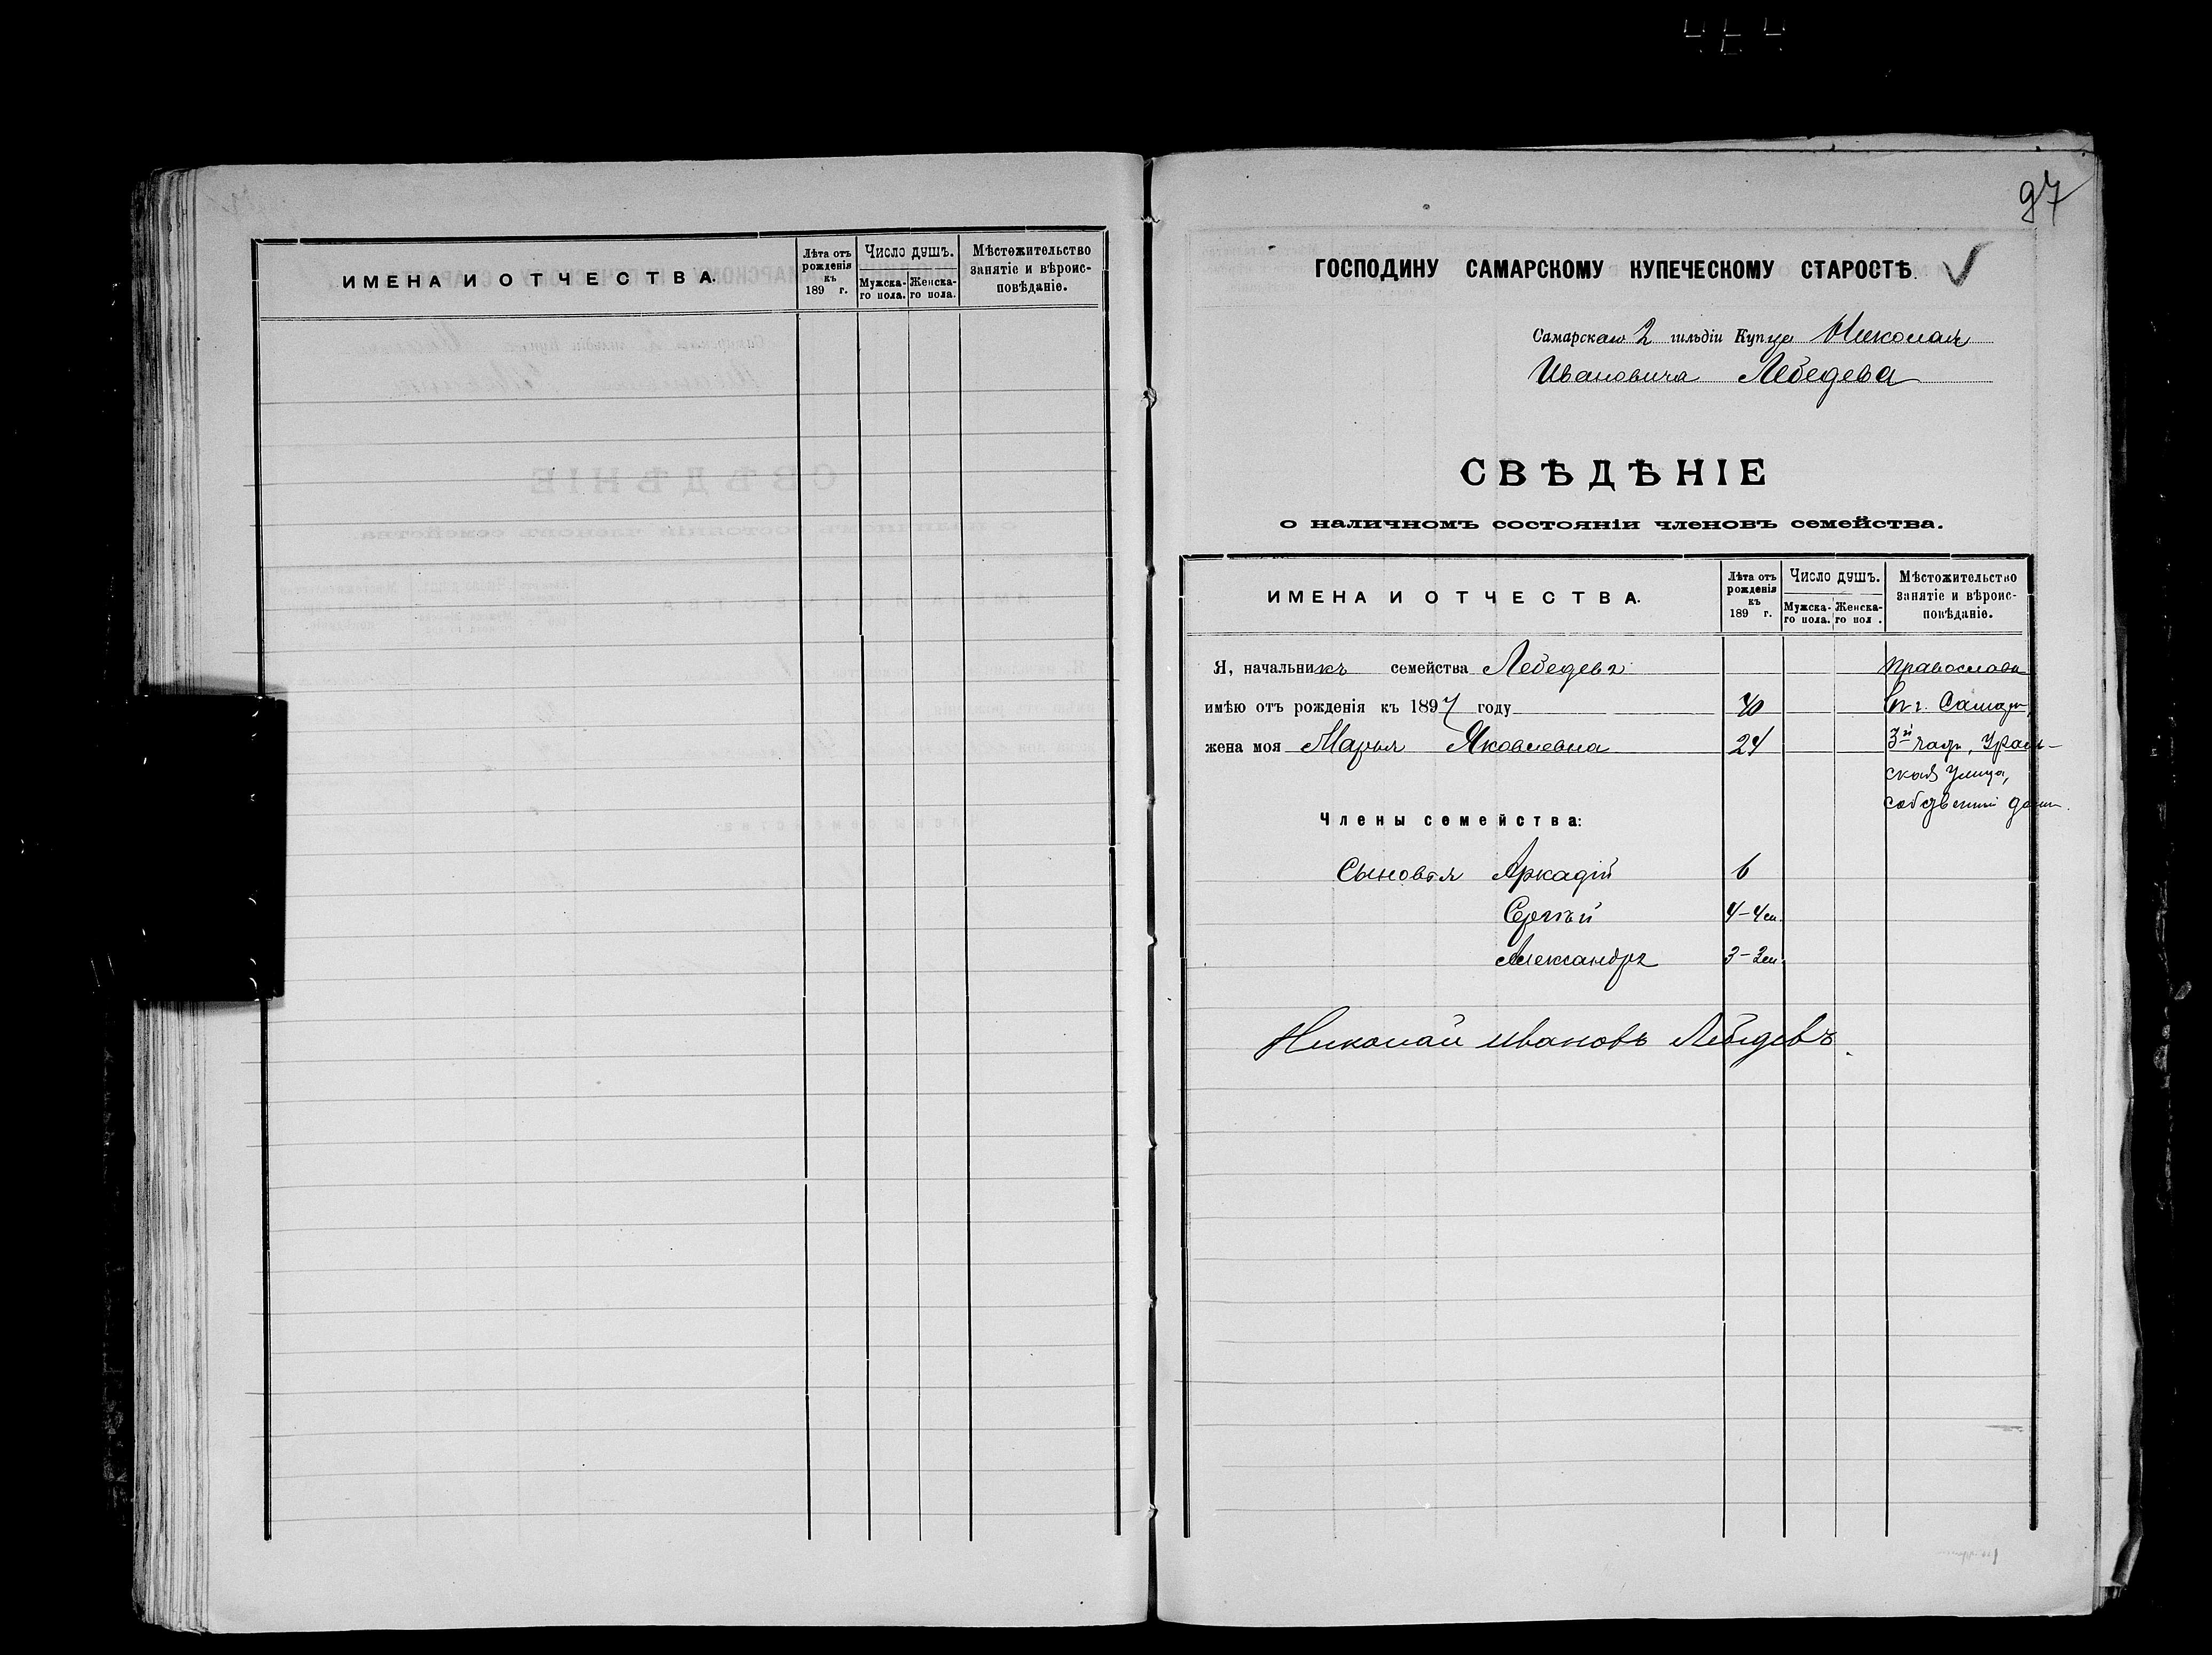 ИМЕНА И ОТЧЕСТВА.
Лѣта отъ рожденія къ 189 г.
Число душъ.
Мужска-го пола.
Женска-го пола.
Мѣстожительство занятіе и вѣроис-повѣданіе.
97
ГОСПОДИНУ САМАРСКОМУ КУПЕЧЕСКОМУ СТАРОСТѢ.
Самарскаго 2 гильдіи Купца Николая
Ивановича Лебедева
СВѢДѢНІЕ
о наличномъ состояніи членовъ семейства.
ИМЕНА И ОТЧЕСТВА.
Лѣта отъ рожденія къ 189 г.
Число душъ.
Мужска-го пола.
Женска-го пол .
Мѣстожительство занятіе и вѣроис-повѣданіе.
Я, начальникъ семейства Лебедевъ
имѣю отъ рожденія къ 1897 году 40
жена моя Марья Яковлевна 24
православн
въ г. Самар
3й част, Ураль-
ская улица,
собственный домъ.
Члены семейства:
Сыновья Аркадій 6
Сергѣй 4-4м.
Александръ 3-
Николай Ивановъ Лебедевъ.